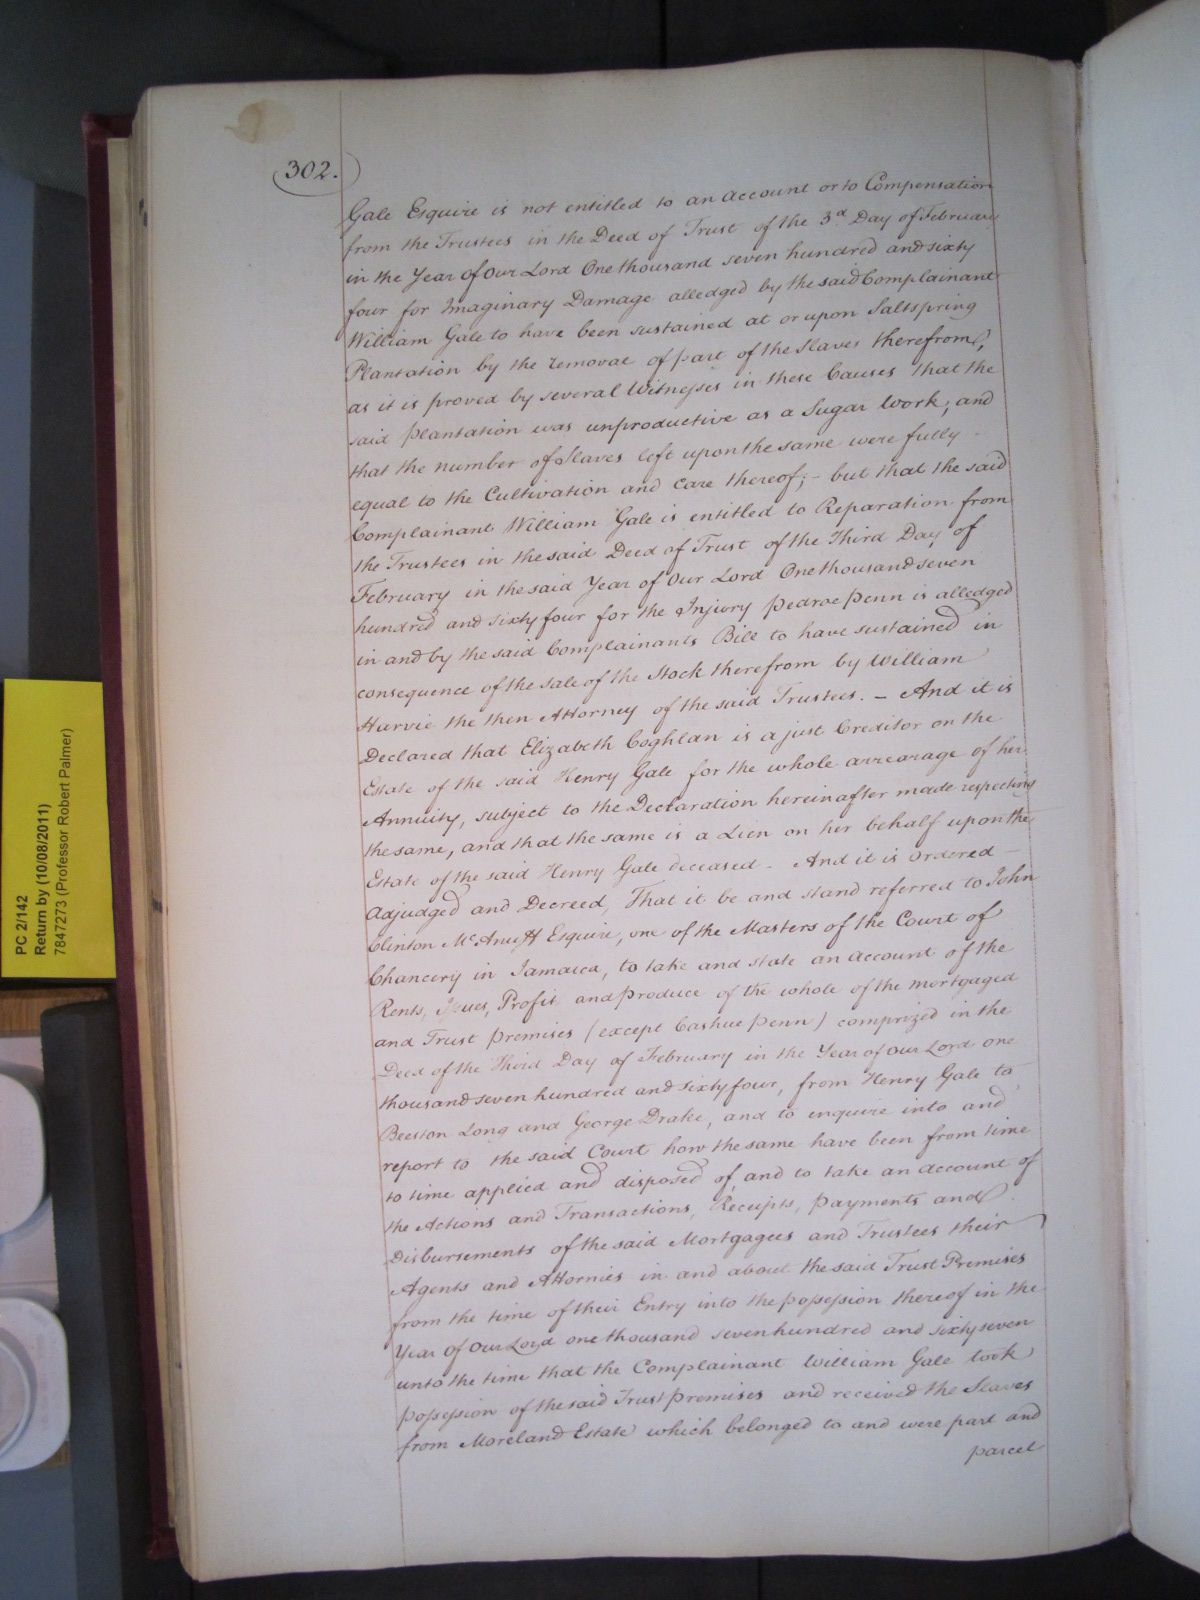 302.
Gale Esquire is not entitled to an Account or to Compensation
from the Trustees in the Deed of Trust of the 3d Day of February
in the Year of Our Lord One thousand seven hundred and sixty
four for Imaginary Damage alledged by the said Complainant
William Gale to have been sustained at or upon Saltspring
Plantation by the removal of part of the Slaves therefrom,
as it is proved by several Witnesses in these Causes that the
said plantation was unproductive as a Sugar Work, and
that the number of Slaves left upon the same were fully
equal to the Cultivation and Care thereof; - but that the said
Complainant William Gale is entitled to Reparation from
the Trustees in the said Deed of Trust of the Third Day of
February in the said Year of Our Lord One thousand seven
hundred and sixty four for the Injury Pedroe Penn is alledged
in and by the said Complainants Bill to have sustained in
consequence of the sale of the Stock therefrom by William
Harvie the then Attorney of the said Trustees. - And it is
Declared that Elizabeth Coghlan is a just Creditor on the
Estate of the said Henry Gale for the whole arrearage of her
Annuity, subject to the Declaration hereinafter made respecting
the same, and that the same is a Lien on her behalf upon the
Estate of the said Henry Gale deceased - And it is Ordered
Adjudged and Decreed, That it be and stand referred to John
Clinton McAnuff Esquire, one of the Masters of the Court of
Chancery in Jamaica, to take and state an Account of the
Rents, Issues, Profit and produce of the whole of the mortgaged
and Trust premises (except Cashue Penn) comprized in the
Deed of the Third Day of February in the Year of Our Lord one
thousand seven hundred and sixty four, from Henry Gale to
Beeston Long and George Drake, and to enquire into and
report to the said Court how the same have been from time
to time applied and disposed of, and to take an Account of
the Actions and Transactions, Receipts, payments and
Disbursements of the said Mortgagees and Trustees their
Agents and Attornies in and about the said Trust Premises
from the time of their Entry into the possession thereof in the
Year of Our Lord one thousand seven hundred and sixty seven
unto the time that the Complainant William Gale took
possession of the said Trust premises and received the Slaves
from Moreland Estate which belonged to and were part and
parcel
PC 2/142
Return by (10/08/2011)
7847273 (Professor Robert Palmer)